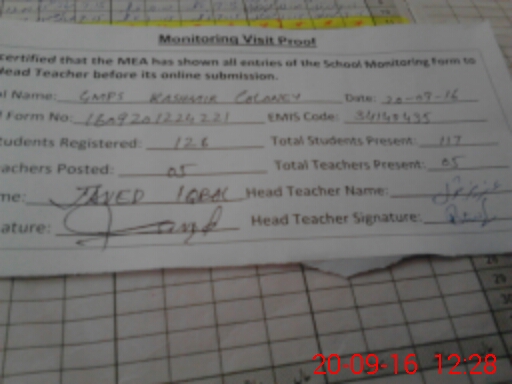 Monitoring Visit Proof
certified that the MEA has shown all entries of the School Monitoring Form to
Head Teacher before its online submission.
ol Name: GMPS KASHMIR COLONEY Date: 20-09-16
Form No: 1609201224221 EMIS Code:
tudents Registered: 126 Total Students Present: 117
achers Posted: 05 Total Teachers Present: 05
me: JAVED IQBAL Head Teacher Name:
ature: Head Teacher Signature:
20-09-16 12:28